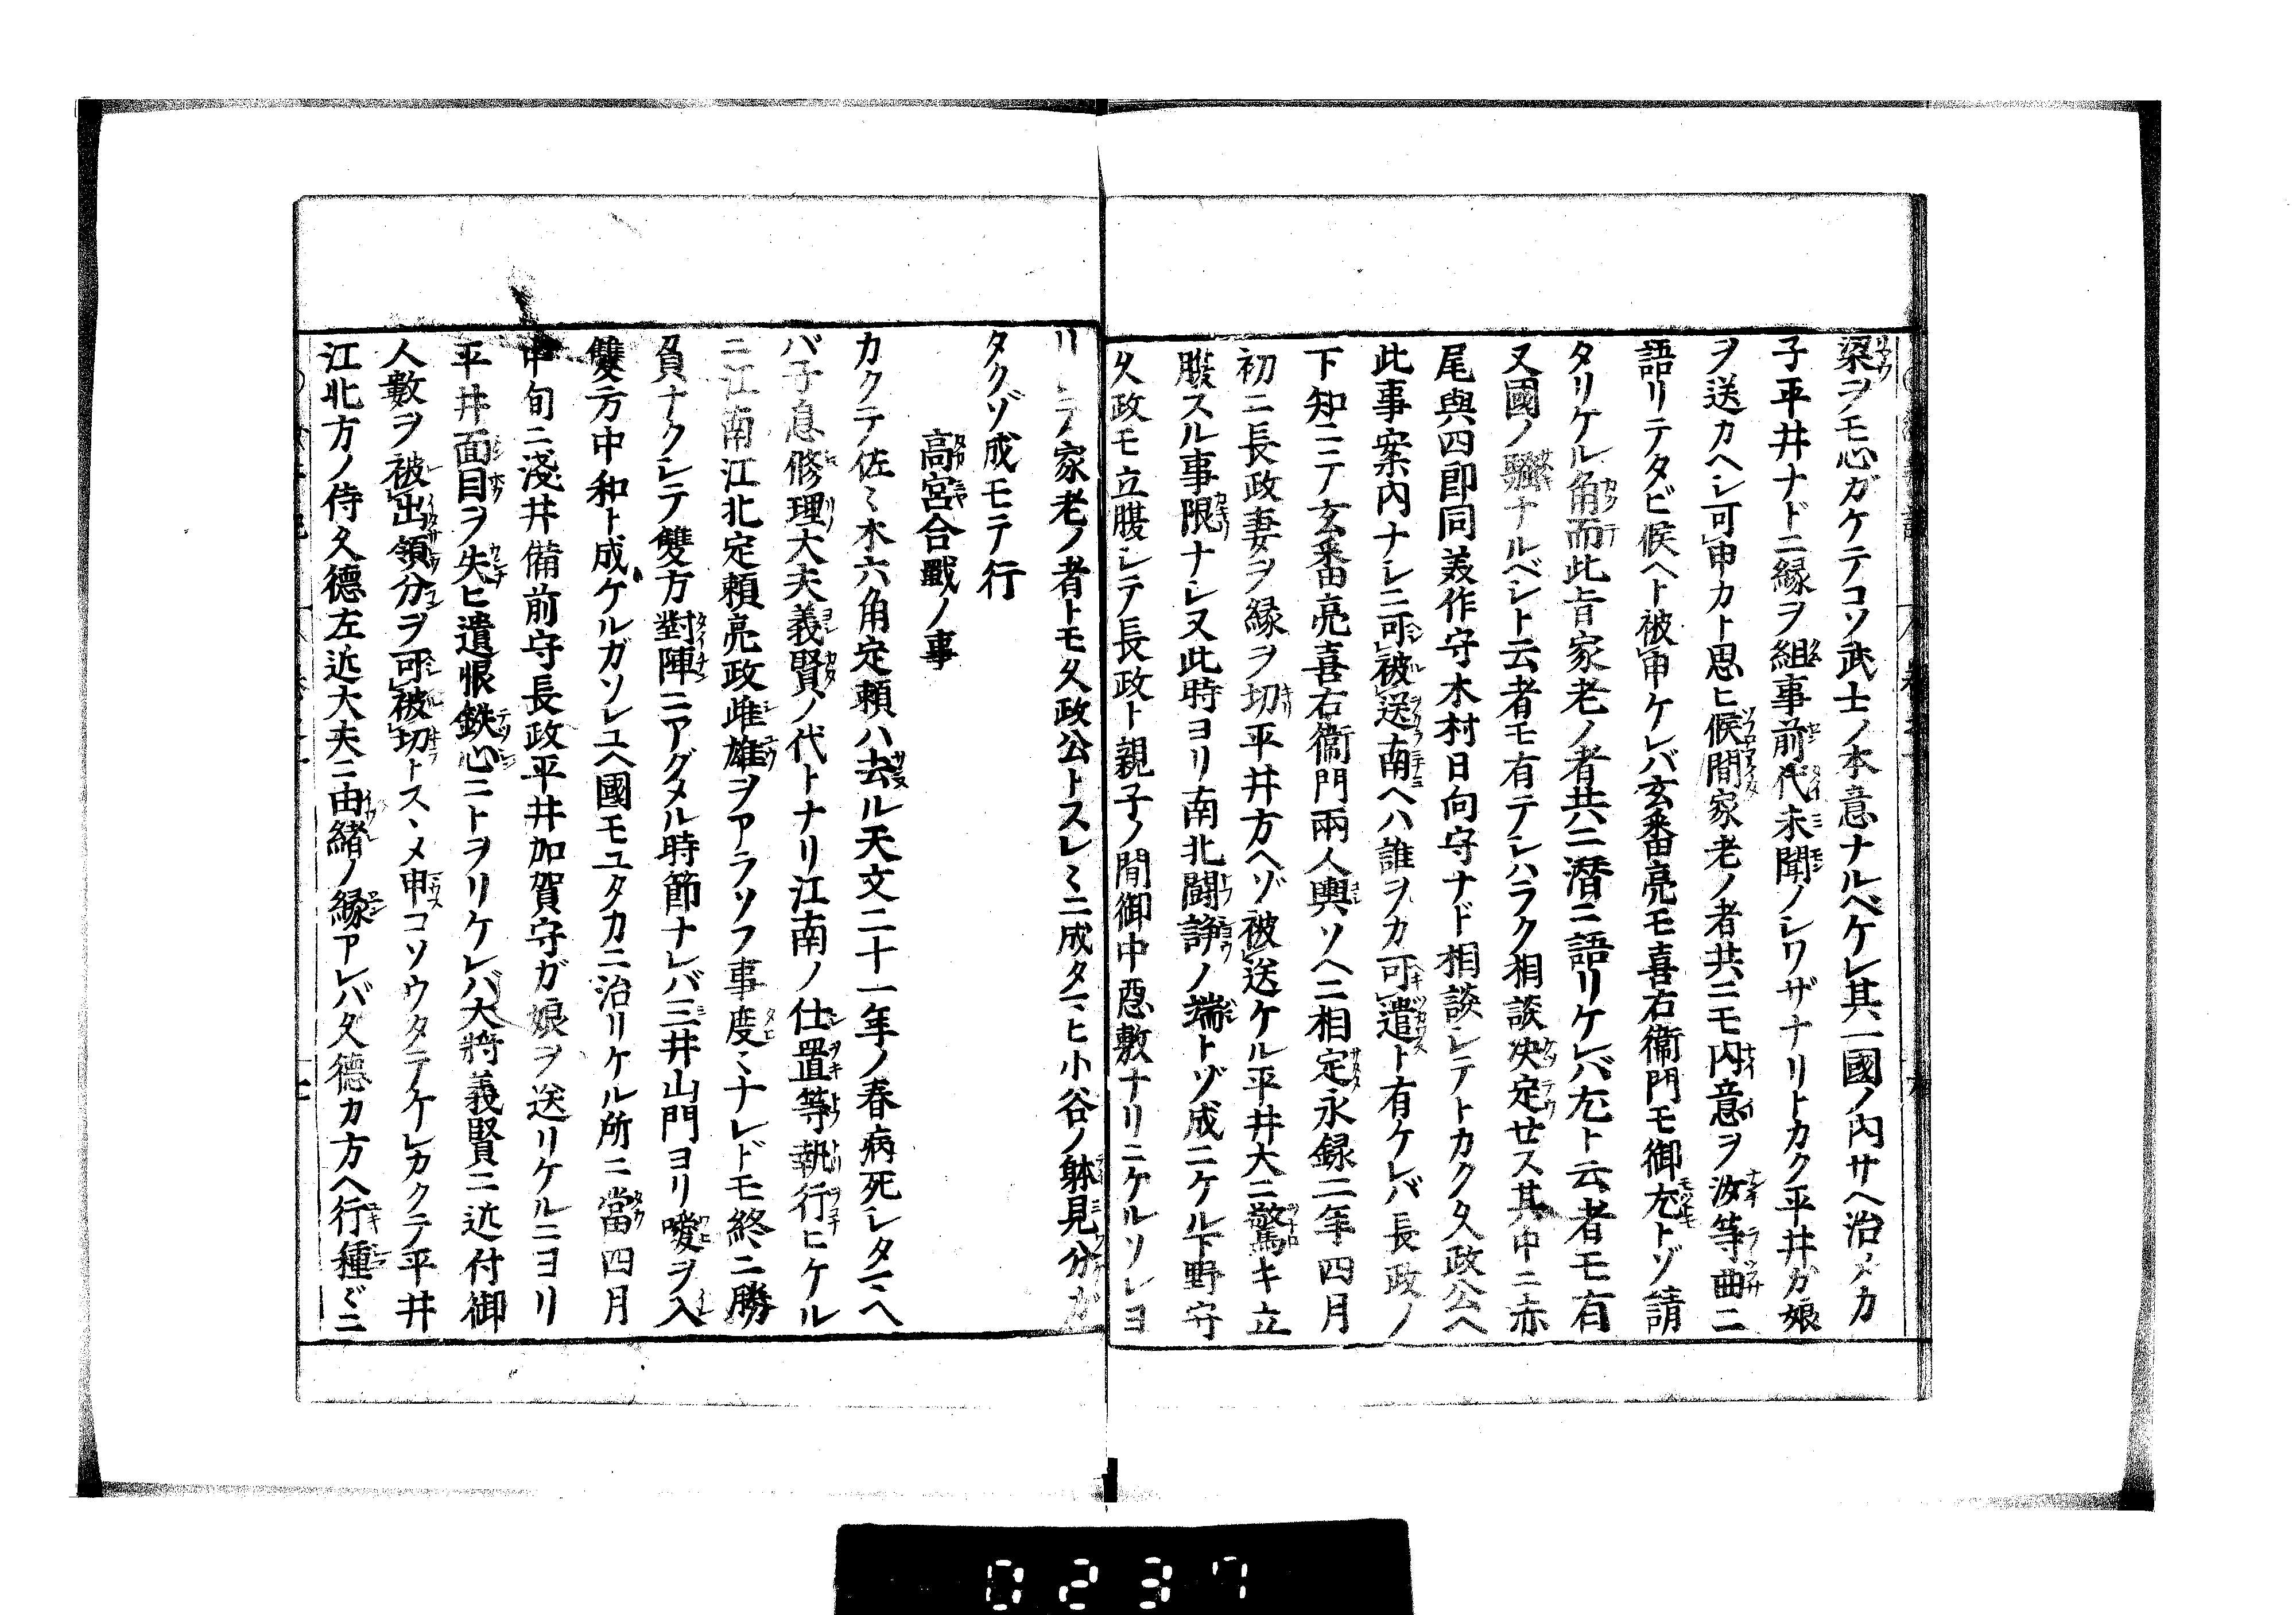 梁ヲモ心ガケテコソ武士ノ本意ナルベケレ其一國ノ内サヘ治メカ
子平井ナドニ縁ヲ組事前代未聞ノシワザナリトカク平井ガ娘
ヲ送カヘシ可申カト思ヒ候間家老ノ者共ニモ内意ヲ汝等曲ニ
語リテタビ候ヘト被申ケレバ玄番亮モ喜右衛門モ御尤トゾ請
タリケル角而此旨家老ノ者共ニ潜ニ語リケレバ尤ト云者モ有
又國ノ騒ナルベシト云者モ有テシハラク相談决定せス其中ニ赤
尾與四郎同美作守木村日向守ナド相談シテトカク久政公ヘ
此事案内ナシニ可被送南ヘハ誰ヲカ可遣ト有ケレバ長政ノ
下知ニテ玄番亮喜右衞門兩人輿ソヘニ相定永録二年四月
初ニ長政妻ヲ縁ヲ切平井方ヘゾ被送ケル平井大ニ驚キ立
腹スル事限ナシ又此時ヨリ南北鬪諍ノ端トゾ成ニケル下野守
久政モ立腹シテ長政ト親子ノ間御中悪敷ナリニケルソレヨ
リシテ家老ノ者トモ久政公トスレミニ成タマヒ小谷ノ躰見分ガ
タクゾ成モテ行
高宮合戰ノ事
カクテ佐ミ木六角定頼ハ去ル天文二十一年ノ春病死シタマヘ
バ子息修理大夫義賢ノ代トナリ江南ノ仕置等執行ヒケル
ニ江南江北定頼亮政雌雄ヲアラソフ事度ミナレドモ終ニ勝
負ナクシテ雙方對陣ニアグメル時節ナレバ三井山門ヨリ噯ヲ入
雙方中和ト成ケルガソレユヘ國モユタカニ治リケル所ニ當四月
中旬ニ淺井備前守長政平井加賀守ガ娘ヲ送リケルニヨリ
平井面目ヲ失ヒ遺恨鉄心ニトヲリケレバ大將義賢ニ近付御
人數ヲ被出領分ヲ可被切トスヽメ申コソウタテケレカクテ平井
江北方ノ侍久德左近大夫ニ由緒ノ縁アレバ久德カ方ヘ行種〲ニ
0237